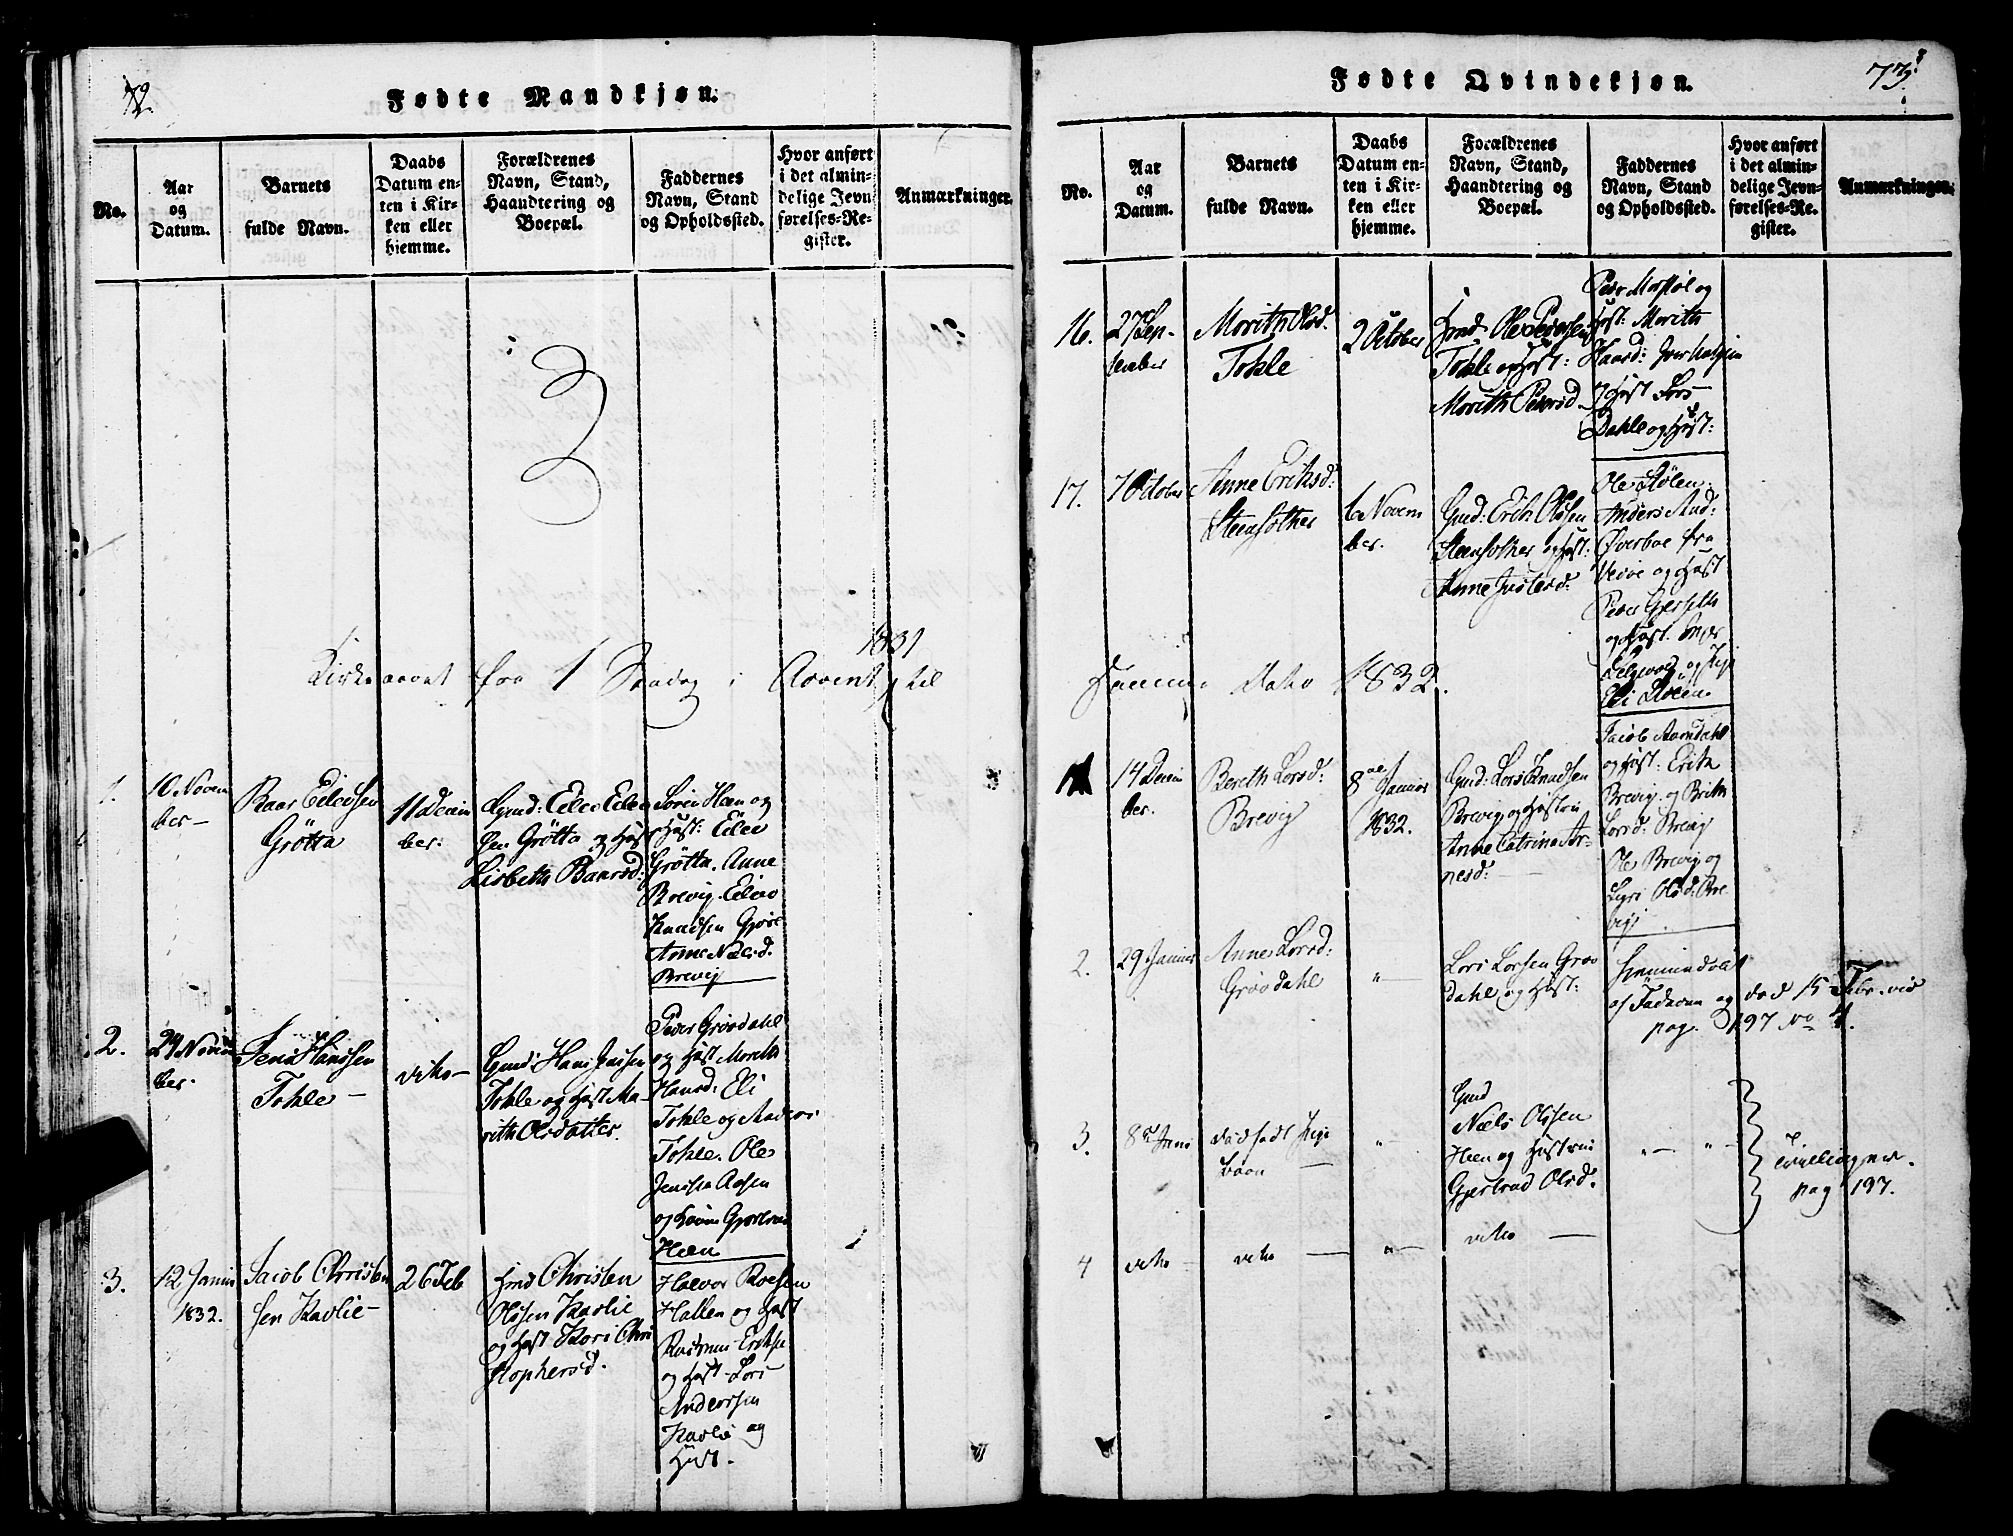 72.
Fødte Mandkjøn.
No.
Aar
og
Datum.
Barnets
fulde Navn.
Daabs
Datum en-
ten i Kir-
ken eller
hjemme.
Forældrenes
Navn, Stand,
Haandtering og
Boepæl.
Faddernes
Navn, Stand
og Opholdssted.
Hvor anført
i det almin-
delige Jevn-
førelses-Re-
gister.
Anmærkninger.
1831
Kirkeaaret fra 1 Søndag i Advent til
1.
10 Novem
ber
Baar Eilevsen
Grötta
11 Decem
ber:
Gmd: Eilev Eilev
sen Grötta og Hust
Lisbeth Baarsd:
Sören Hæn og
Hust: Eilev
Grötta. Anne
Brevig. Eilev
Knudsen
Anne Nilsd.
Brevig
2.
29 Novem
ber.
Jens Hansen
Tokle
dito
Gmd: Hans Jensen
Tokle og Hust Ma-
rith Olsdatter.
Peder Grövdahl
og Hust Marith
Hansd: Eli
Tokle og Anders
Tokle. Ole
Jensen
Hæn
3.
12 Januar
1832.
Jacob Christen
sen Kavlie
26 Feb
Gmd Christen
Olsen Kavlie
og Hust Kari Chri
stophersd.
Halvor
Hallen og Hust
Rasmus Eriksen
og Hust Lars
Anderssen
Kavlie og
Hust.
73.
Fødte Qvindekjøn.
No.
Aar
og
Datum.
Barnets
fulde Navn.
Daabs
Datum en-
ten i Kir-
ken eller
hjemme.
Forældrenes
Navn, Stand,
Haandtering og
Boepæl.
Faddernes
Navn, Stand
og Opholdssted.
Hvor anført
i det almin-
delige Jevn-
førelses-Re-
gister.
Anmærkninger.
16.
27 Sep-
tember
Marith Olsd.
Tokle
2 October
Gmd. Ole Pedersen
Tokle og Hust:
Marith Pedersd
Peder og
Hust: Marith
og Hust Lars
Dahle og Hust:
17.
7 October
Anne Eriksd:
6 Novem
ber.
Gmd: Erik Olsen
og Hust:
Anne
Ole Stölen
Anders And:
Överboe fra
og Hust
Peder
og Hust.
og
Eli
Samme Dato 1832.
14 Decem
ber.
Bereth Larsd:
Brevig
8de Januar
1832.
Gmd: Lars Knudsen
Brevig og Hustru
Anne Catrina Ar-
nesd:
Jacob
og Hust: Erik
Brevig og Brith
Larsd: Brevig
Ole Brevig og
Sigri Olsd: Bre
vig.
2.
29 Januar
Anne Larsd:
Grövdahl
"
Lars Larsen Gröv
dahl og Hust:
hjemmedöbt
af Faderen og död 15 Febr. vid
pag. 197 No 4.
3.
8de Juni
dödfödt Pige
barn
"
Gmd
Niels Olsen
Hæn og Hustru
Gjertrud Olsd.
" "
Tvillinger.
pag 197.
4
dito
dito
"
dito